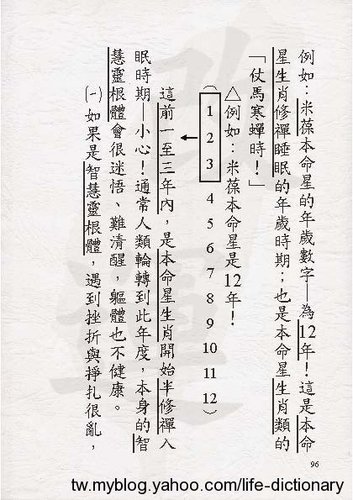 例如：米葆本命星的年歲數字—為12年！這是本命
星生肖修禪睡眠的年歲時期；也是本命星生肖類的
「仗馬寒蟬時！」
△例如：米葆本命星是12年！
(1 2 3 4 5 6 7 8 9 10 11 12)
這前一至三年內，是本命星生肖開始半修禪入
眠時期—小心！通常人類輪轉到此年度，本身的智
慧靈根體會很迷悟、難清醒，軀體也不健康。
(一)如果是智慧靈根體，遇到挫折與掙扎很亂，
96
tw.myblog.yahoo.com/life-dictionary